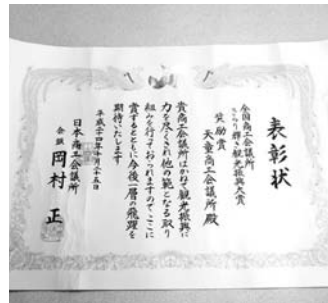 表彰状
全国商工会議所
きらり輝き観光振興大賞
奨励賞
天童商工会議所殿
貴商工会議所はかねて観光振興に
力を尽くされ他の範となる取り
組みを行っておられますのでここに
賞するとともに今後一層の飛躍を
期待いたします
平成二十四年十月二十五日
日本商工会議所
会頭 岡村 正